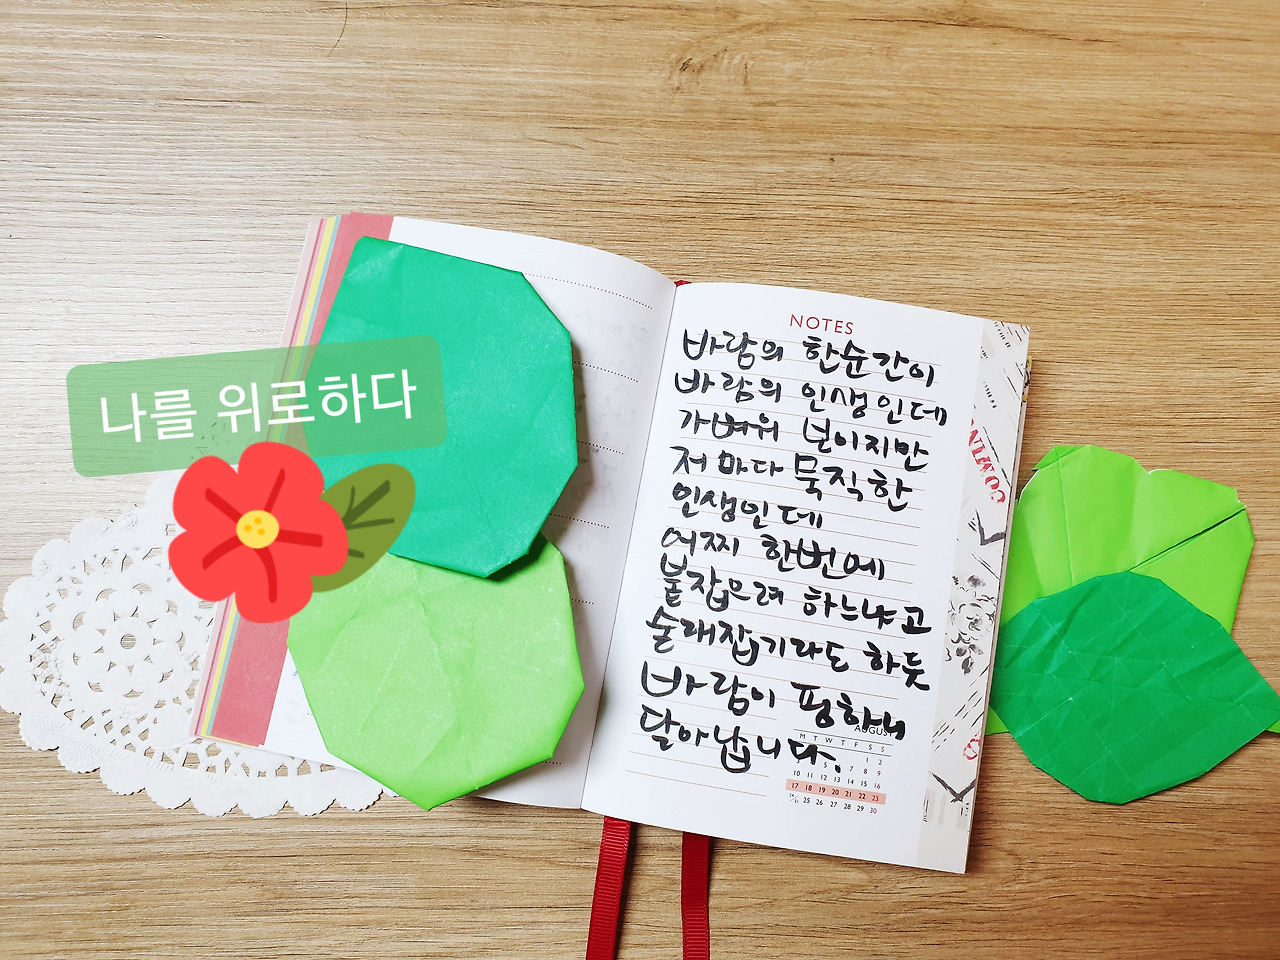 나를 위로하다
NOTES
바람의 한순간이
바람의 인생인데
가벼워 보이지만
저마다 묵직한
인생인데
어찌 한번에
붙잡으려 하느냐고
술래잡기라도 하듯
바람이 핑하니
달아납니다.
AUGUST
M T W T F S S
1 2
5 6 7 8 9
10 11 12 13 14 15 16
17 18 19 20 21 22 23
24/31 25 26 27 28 29 30
COMIN